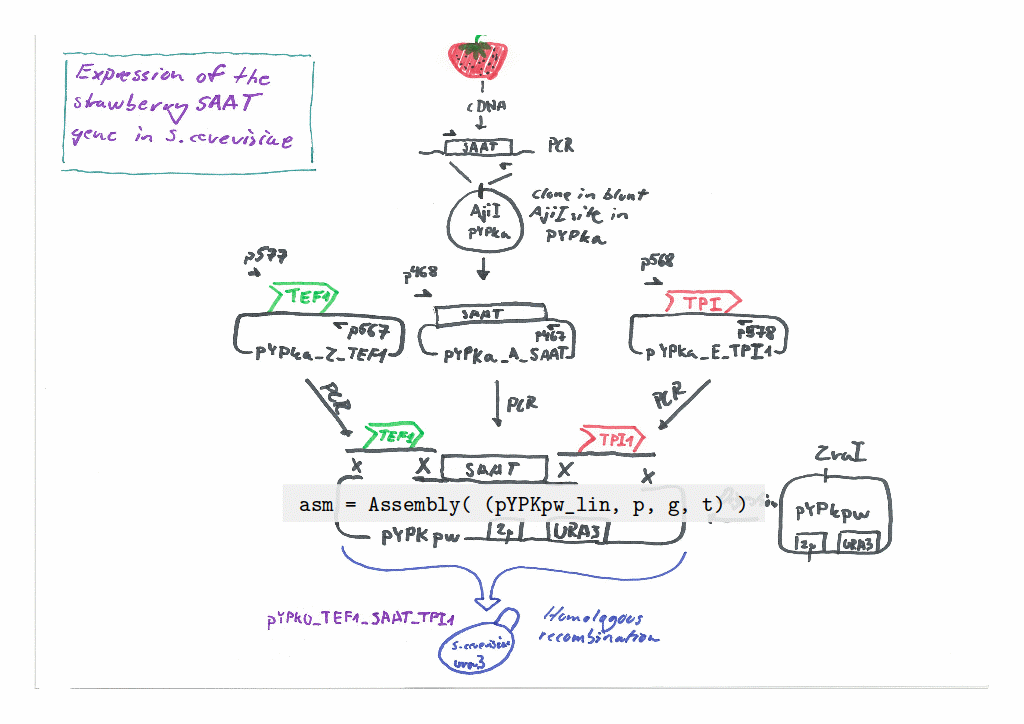 Expression of the
strawberry SAAT
gene in S. cerevisiae
cDNA
SAAT
PCR
AjiI
pYPka
Clone in blunt
AjiI site in
pYPka
p577
TEF1
p667
pYPka_Z_TEF1
p468
SAAT
p467
pYPKa_A_SAAT
p568
TPI
p578
pYPka_E_TPI1
PCR
PCR
PCR
TEF1
TPI1
X
X
SAAT
X
X
asm = Assembly( (pYPKpw_lin, p, g, t) )
pYPKpw
2µ
URA3
ZraI
pYPkpw
2µ
URA3
pYPK0_TEF1_SAAT_TPI1
Homologous
recombination
S. cerevisiae
ura3